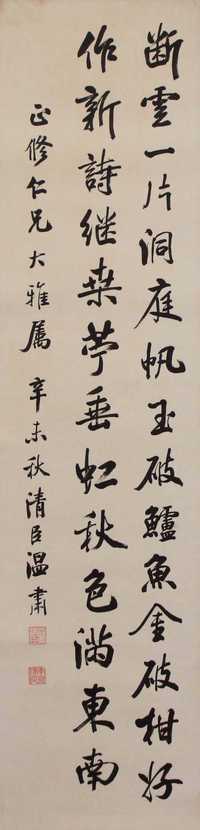 断雲一片洞庭帆玉破鱸魚金破柑好
作新詩继桑苧垂虹秋色滿東南
正修仁兄大雅属 辛未秋清臣温肅